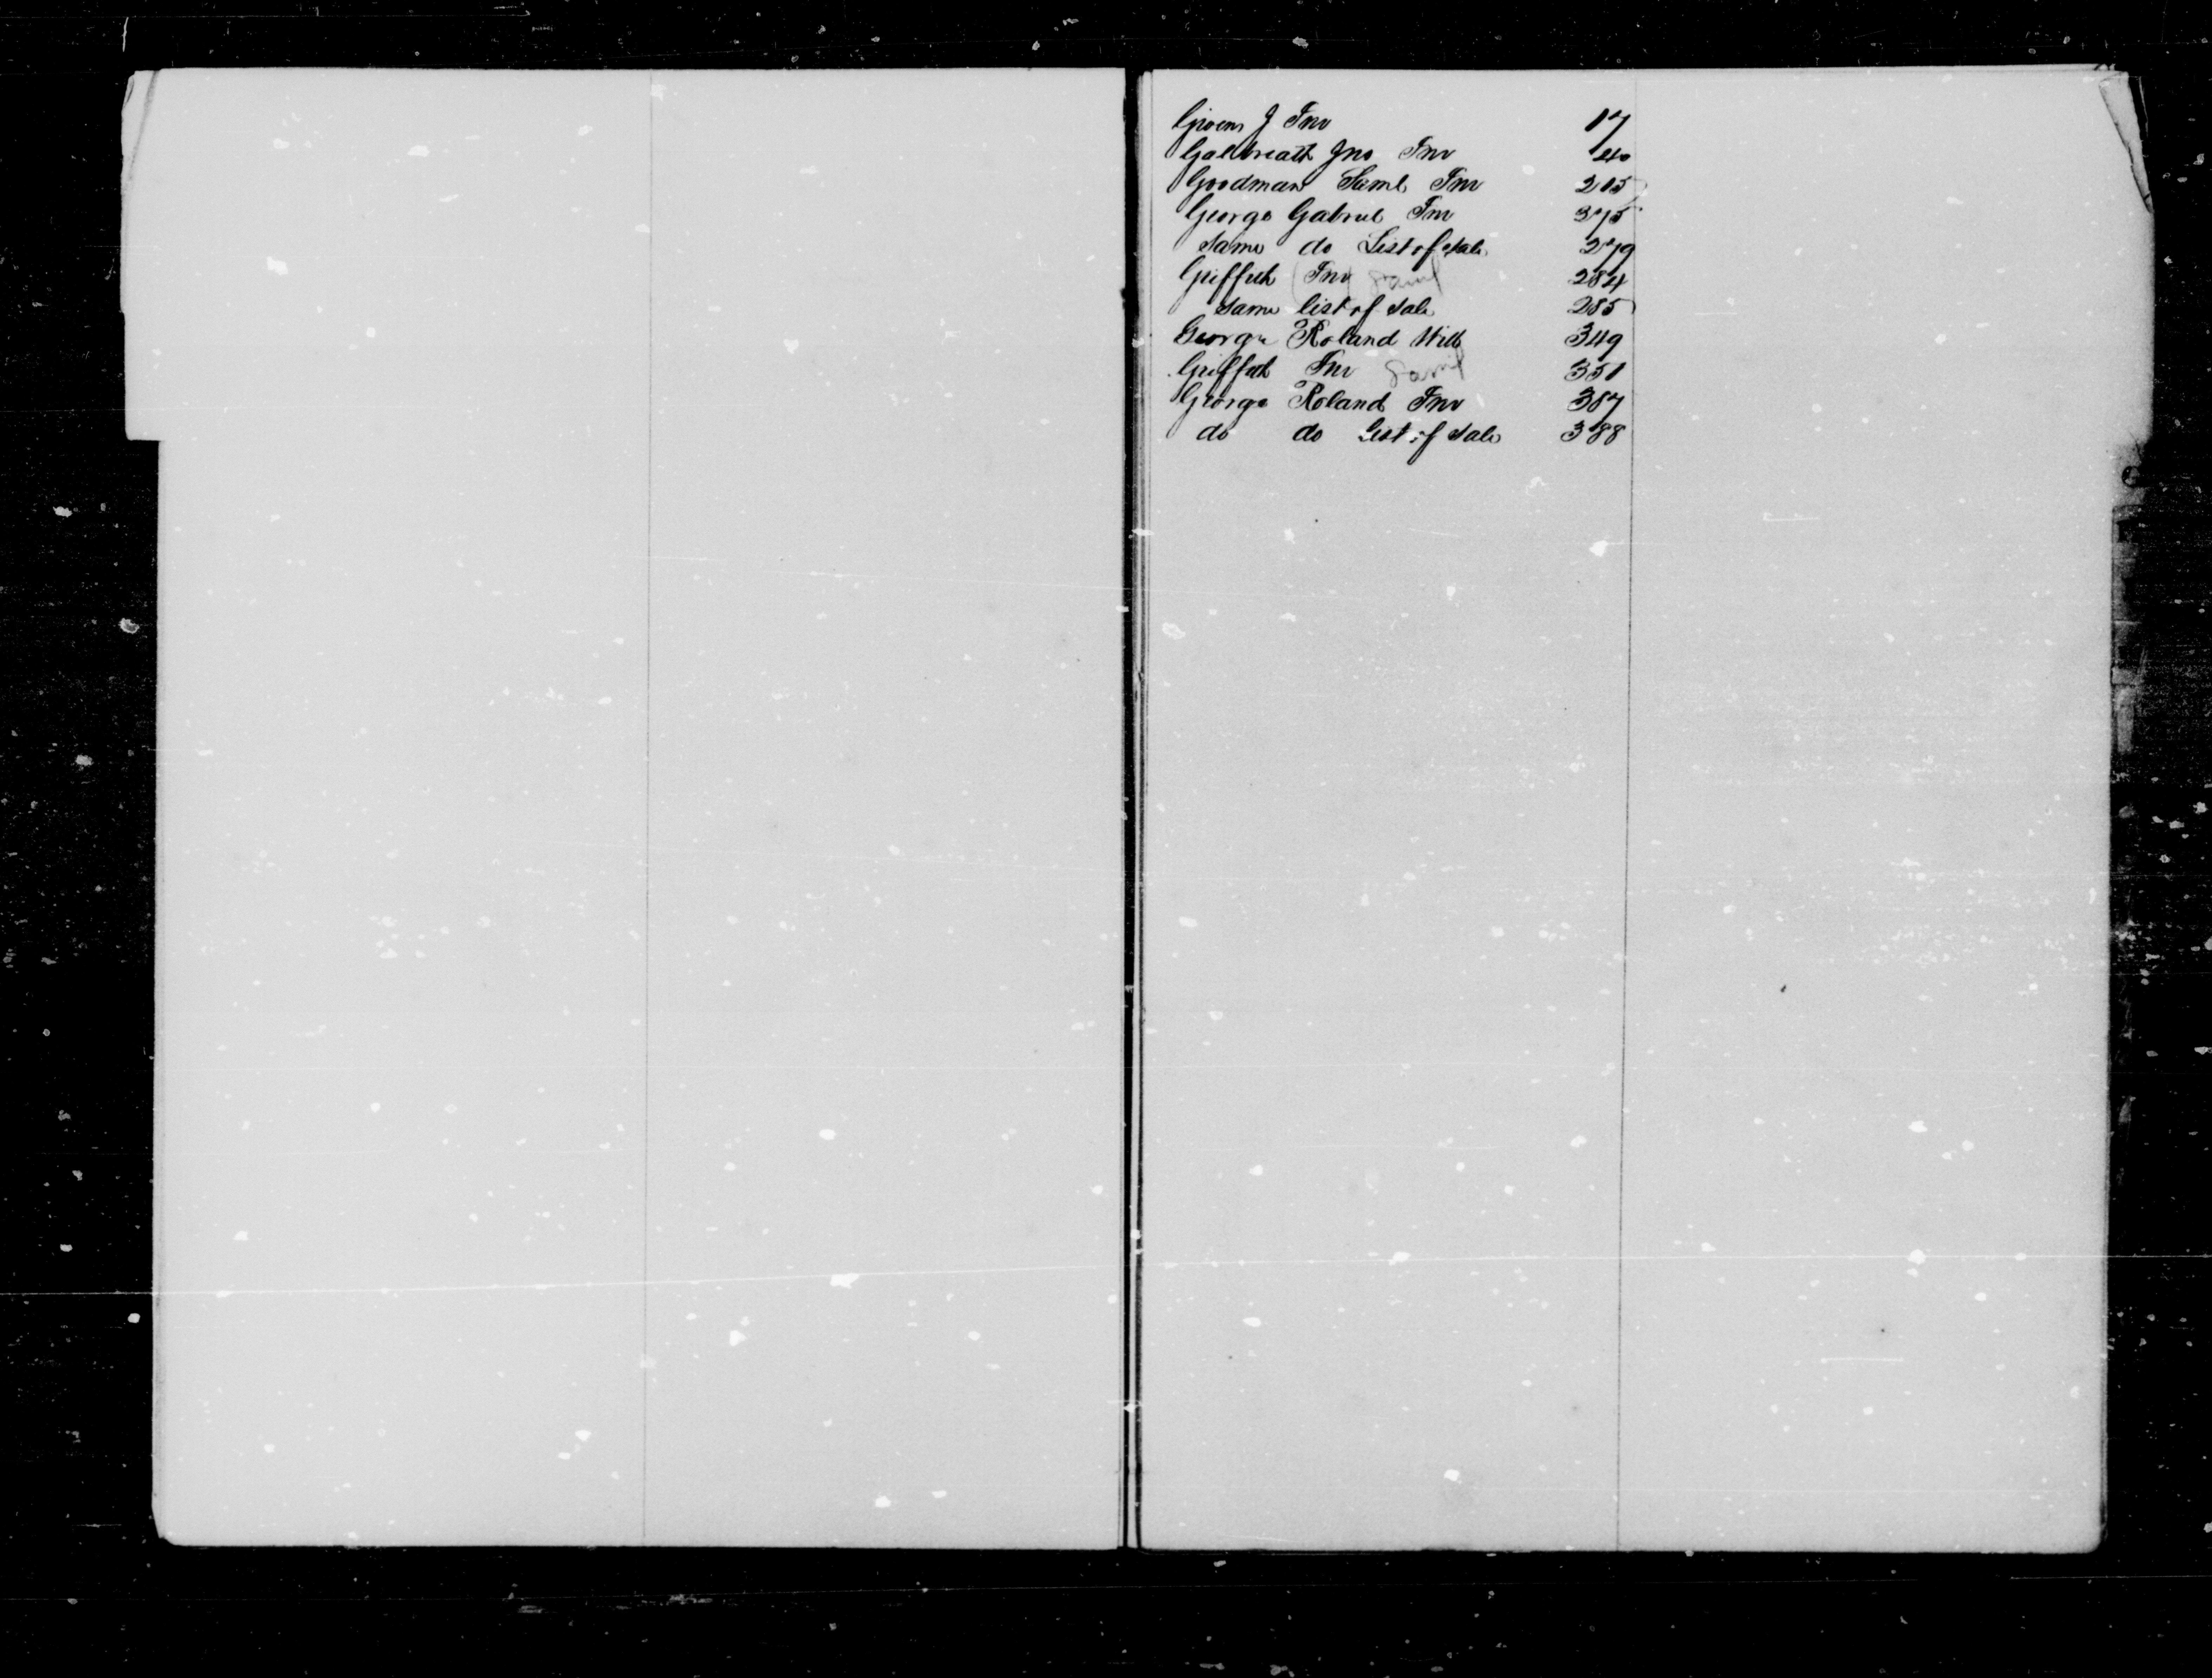 Givens J Inv 17
Galbreath Jno Inv 40
Goodman Saml Inv 215
George Gabriel Inv 375
Same do List of Sale 279
Griffith Inv Saml 284
Same list of Sale 285
George Roland Will 349
Griffith Inv Saml 351
George Roland Inv 387
do do List of Sale 388